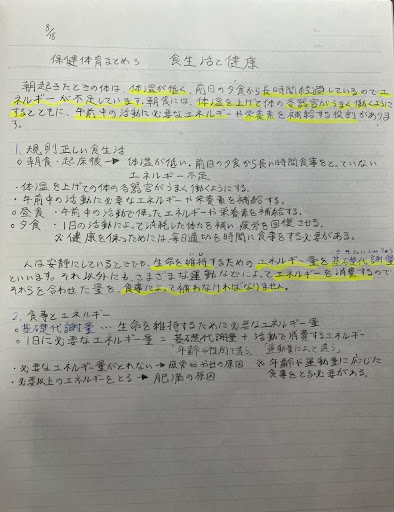 8/18
保健体育まとめ5 食生活と健康
朝起きたときの体は、体温が低く、前日の夕食から長時間経過しているのでエ
ネルギーが不足しています。朝食には、体温を上げて体の各器官がうまく働くように
するとともに、午前中の活動に必要なエネルギーや栄養素を補給する役割がありま
す。
1. 規則正しい食生活
○朝食・起床後→体温が低い。前日の夕食から長い時間食事をとっていない
エネルギー不足
・体温を上げて体の各器官がうまく働くようにする。
・午前中の活動に必要なエネルギーや栄養素を補給する。
○昼食・午前中の活動で使ったエネルギーや栄養素を補給する。
○夕食・1日の活動によって消耗した体力を補い、疲労を回復させる。
※健康を保つためには、毎日適切な時間に食事をする必要がある。
人は安静にしているときでも、生命を維持するためのエネルギー量を基礎代謝量
といいます。それ以外にもさまざまな運動などによってエネルギーを消費するので
それらを合わせた量を、食事によって補わなければなりません。
2. 食事とエネルギー
○基礎代謝量…生命を維持するために必要なエネルギー量
○1日に必要なエネルギー量=基礎代謝量+活動で消費するエネルギー
年齢や性別で違う。 運動量によって違う。
・必要なエネルギーがとれない→疲労ややせの原因 ※年齢や運動量に応じた
・必要以上のエネルギーをとる→肥満の原因 食事をとる必要がある。